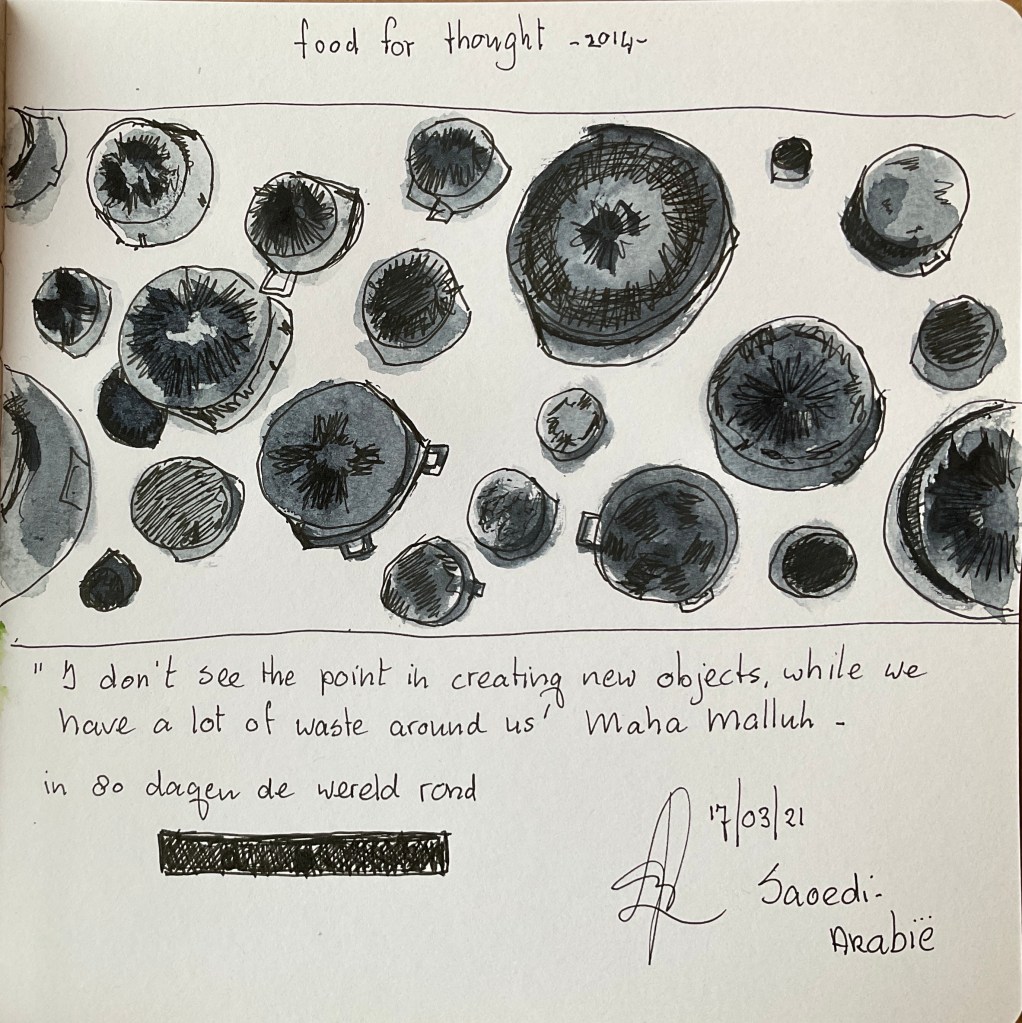 food for thought -2014-
" I don't see the point in creating new objects, while we
have a lot of waste around us' Maha Malluh -
in 80 dagen de wereld rond
17/03/21
Saoedi-
Arabië